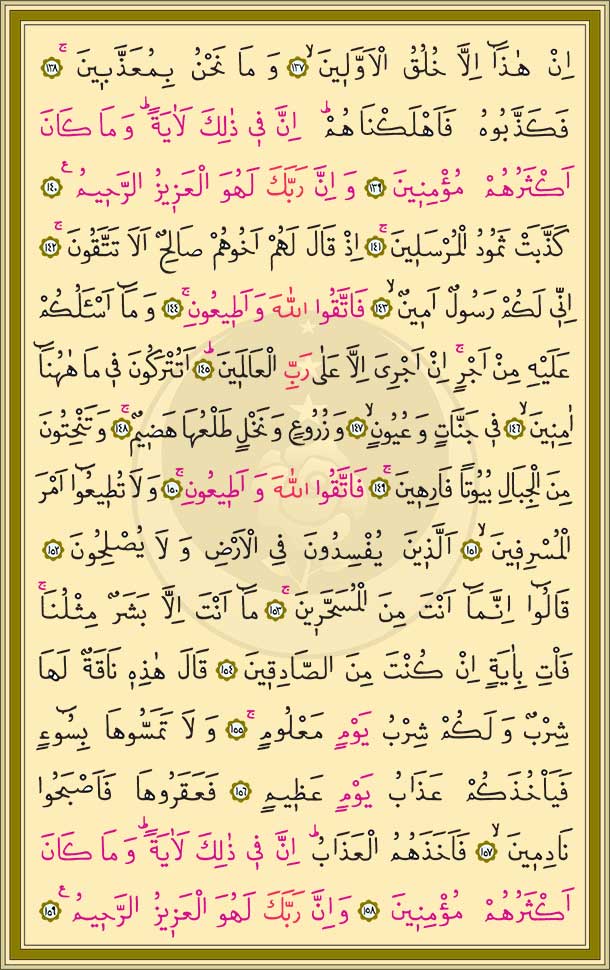 اِنْ هٰذَٓا اِلَّا خُلُقُ الْاَوَّل۪ينَۙ ﴿١٣٧﴾ وَمَا نَحْنُ بِمُعَذَّب۪ينَۚ ﴿١٣٨﴾
فَكَذَّبُوهُ فَاَهْلَكْنَاهُمْۜ اِنَّ ف۪ي ذٰلِكَ لَاٰيَةًۜ وَمَا كَانَ
اَكْثَرُهُمْ مُؤْمِن۪ينَ ﴿١٣٩﴾ وَاِنَّ رَبَّكَ لَهُوَ الْعَز۪يزُ الرَّح۪يمُ۟ ﴿١٤٠﴾
كَذَّبَتْ ثَمُودُ الْمُرْسَل۪ينَۚ ﴿١٤١﴾ اِذْ قَالَ لَهُمْ اَخُوهُمْ صَالِحٌ اَلَا تَتَّقُونَۚ ﴿١٤٢﴾
اِنّ۪ي لَكُمْ رَسُولٌ اَم۪ينٌۙ ﴿١٤٣﴾ فَاتَّقُوا اللّٰهَ وَاَط۪يعُونِۚ ﴿١٤٤﴾ وَمَٓا اَسْـَٔلُكُمْ
عَلَيْهِ مِنْ اَجْرٍۚ اِنْ اَجْرِيَ اِلَّا عَلٰى رَبِّ الْعَالَم۪ينَۜ ﴿١٤٥﴾ اَتُتْرَكُونَ ف۪ي مَا هٰهُنَٓا
اٰمِن۪ينَۙ ﴿١٤٦﴾ ف۪ي جَنَّاتٍ وَعُيُونٍۙ ﴿١٤٧﴾ وَزُرُوعٍ وَنَخْلٍ طَلْعُهَا هَض۪يمٌۚ ﴿١٤٨﴾ وَتَنْحِتُونَ
مِنَ الْجِبَالِ بُيُوتًا فَارِه۪ينَۚ ﴿١٤٩﴾ فَاتَّقُوا اللّٰهَ وَاَط۪يعُونِۚ ﴿١٥٠﴾ وَلَا تُط۪يعُٓوا اَمْرَ
الْمُسْرِف۪ينَۙ ﴿١٥١﴾ اَلَّذ۪ينَ يُفْسِدُونَ فِي الْاَرْضِ وَلَا يُصْلِحُونَ ﴿١٥٢﴾
قَالُٓوا اِنَّمَٓا اَنْتَ مِنَ الْمُسَحَّر۪ينَۚ ﴿١٥٣﴾ مَٓا اَنْتَ اِلَّا بَشَرٌ مِثْلُنَاۚ
فَأْتِ بِاٰيَةٍ اِنْ كُنْتَ مِنَ الصَّادِق۪ينَ ﴿١٥٤﴾ قَالَ هٰذِه۪ نَاقَةٌ لَهَا
شِرْبٌ وَلَكُمْ شِرْبُ يَوْمٍ مَعْلُومٍۚ ﴿١٥٥﴾ وَلَا تَمَسُّوهَا بِسُٓوءٍ
فَيَأْخُذَكُمْ عَذَابُ يَوْمٍ عَظ۪يمٍ ﴿١٥٦﴾ فَعَقَرُوهَا فَاَصْبَحُوا
نَادِم۪ينَۙ ﴿١٥٧﴾ فَاَخَذَهُمُ الْعَذَابُۜ اِنَّ ف۪ي ذٰلِكَ لَاٰيَةًۜ وَمَا كَانَ
اَكْثَرُهُمْ مُؤْمِن۪ينَ ﴿١٥٨﴾ وَاِنَّ رَبَّكَ لَهُوَ الْعَز۪يزُ الرَّح۪يمُ۟ ﴿١٥٩﴾